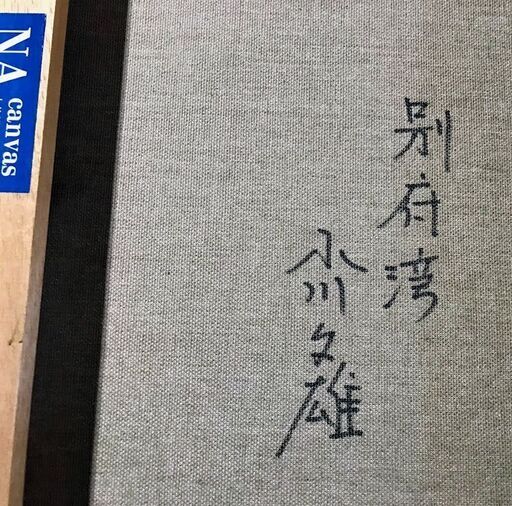 別府湾
小川文雄
canvas
NA